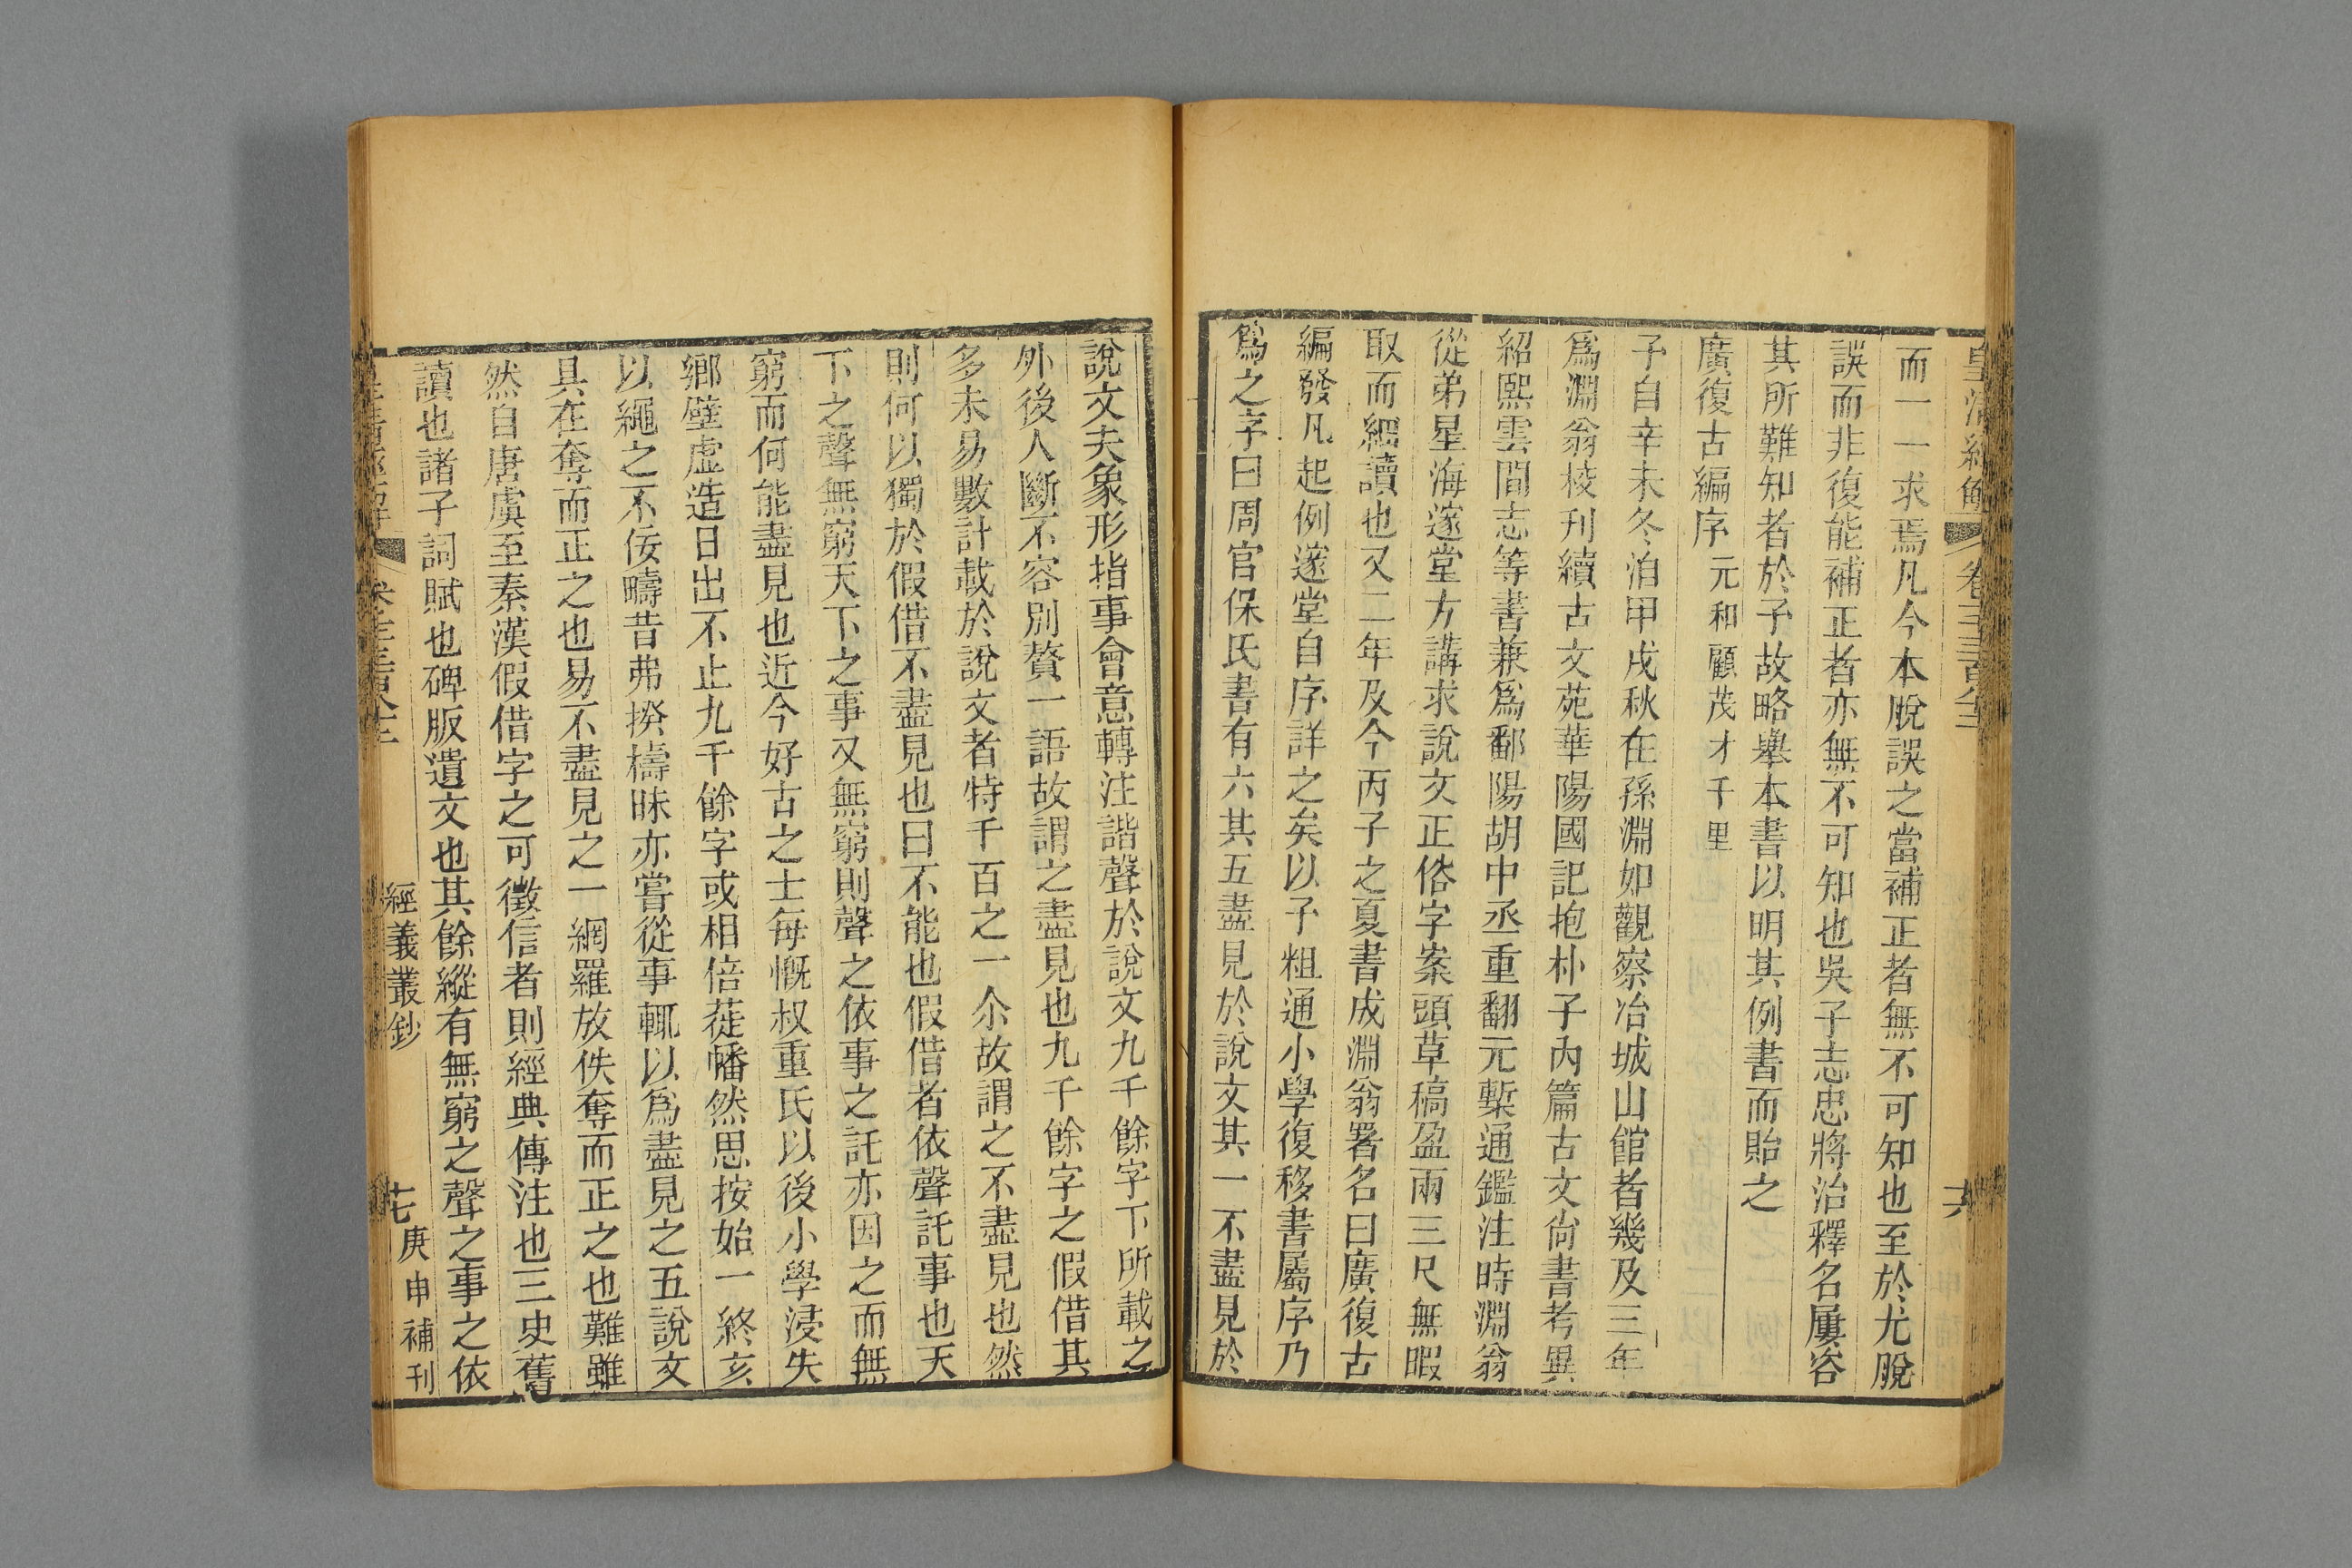 皇清經解
卷一千三百八十三
六
而一一求焉凡今本脫誤之當補正者無不可知也至於尤脫
誤而非復能補正者亦無不可知也吳子志忠將治釋名屢咨
其所難知者於予故略舉本書以明其例書而貽之
廣復古編序 元和顧茂才千里
予自辛未冬洎甲戌秋在孫淵如觀察冶城山館者幾及三年
爲淵翁校刊續古文苑華陽國記抱朴子內篇古文尙書考異
紹熙雲間志等書兼爲鄱陽胡中丞重翻元槧通鑑注時淵翁
從弟星海邃堂方講求說文正俗字案頭草稿盈兩三尺無暇
取而細讀也又二年及今丙子之夏書成淵翁署名曰廣復古
編發凡起例邃堂自序詳之矣以予粗通小學復移書屬序乃
爲之序曰周官保氏書有六其五盡見於說文其一不盡見於
說文夫象形指事會意轉注諧聲於說文九千餘字下所載之
外後人斷不容別贅一語故謂之盡見也九千餘字之假借其
多未易數計載於說文者特千百之一尒故謂之不盡見也然
則何以獨於假借不盡見也曰不能也假借者依聲託事也天
下之聲無窮天下之事又無窮則聲之依事之託亦因之而無
窮而何能盡見也近今好古之士每慨叔重氏以後小學浸失
鄉壁虛造日出不止九千餘字或相倍蓰幡然思按始一終亥
以繩之不佞疇昔弗揆檮昧亦嘗從事輒以爲盡見之五說文
具在奪而正之也易不盡見之一網羅放佚奪而正之也難雖
然自唐虞至秦漢假借字之可徵信者則經典傳注也三史舊
讀也諸子詞賦也碑版遺文也其餘縱有無窮之聲之事之依
經義叢鈔
七
庚申補刊